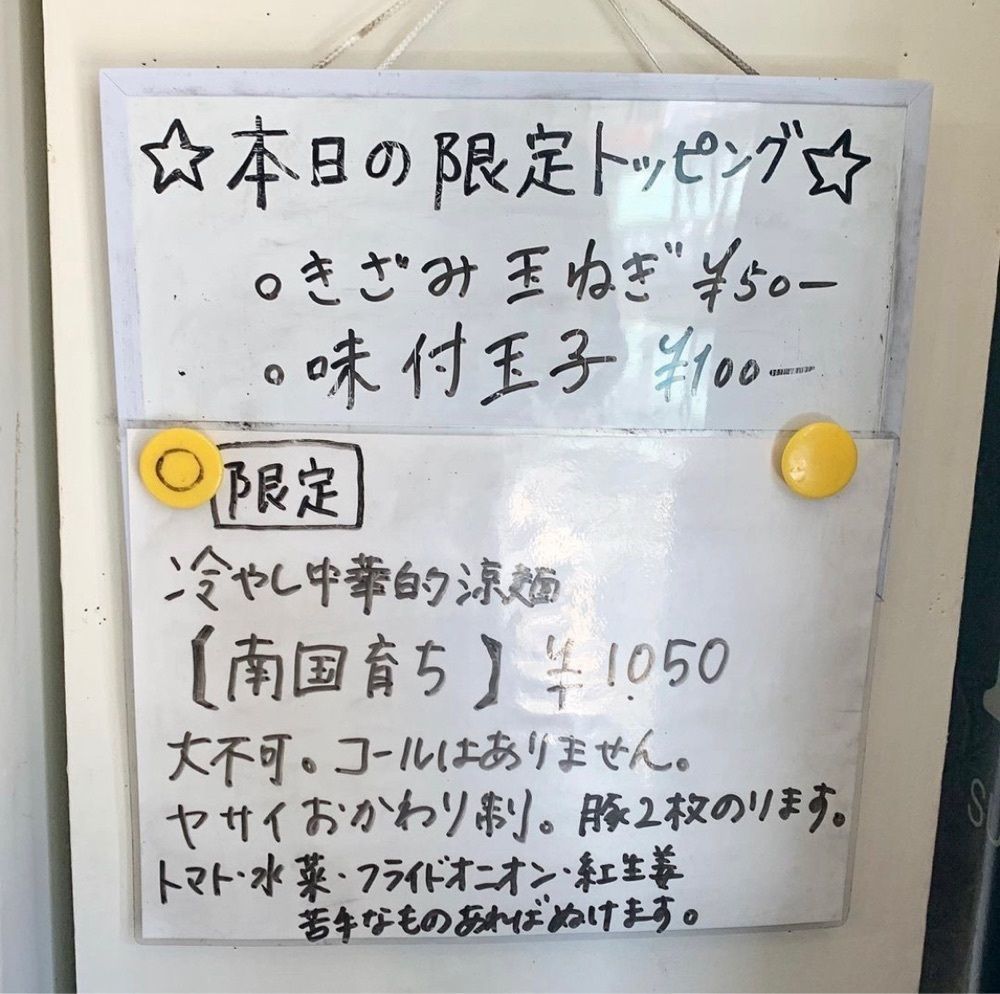 ☆本日の限定トッピング☆
○きざみ玉ねぎ ¥50ー
○味付玉子 ¥100ー
限定
冷やし中華的涼麺
【南国育ち】 ¥1050
大不可。コールはありません。
ヤサイおかわり制。豚2枚のります。
トマト・水菜・フライドオニオン・紅生姜
苦手なものあればぬけます。